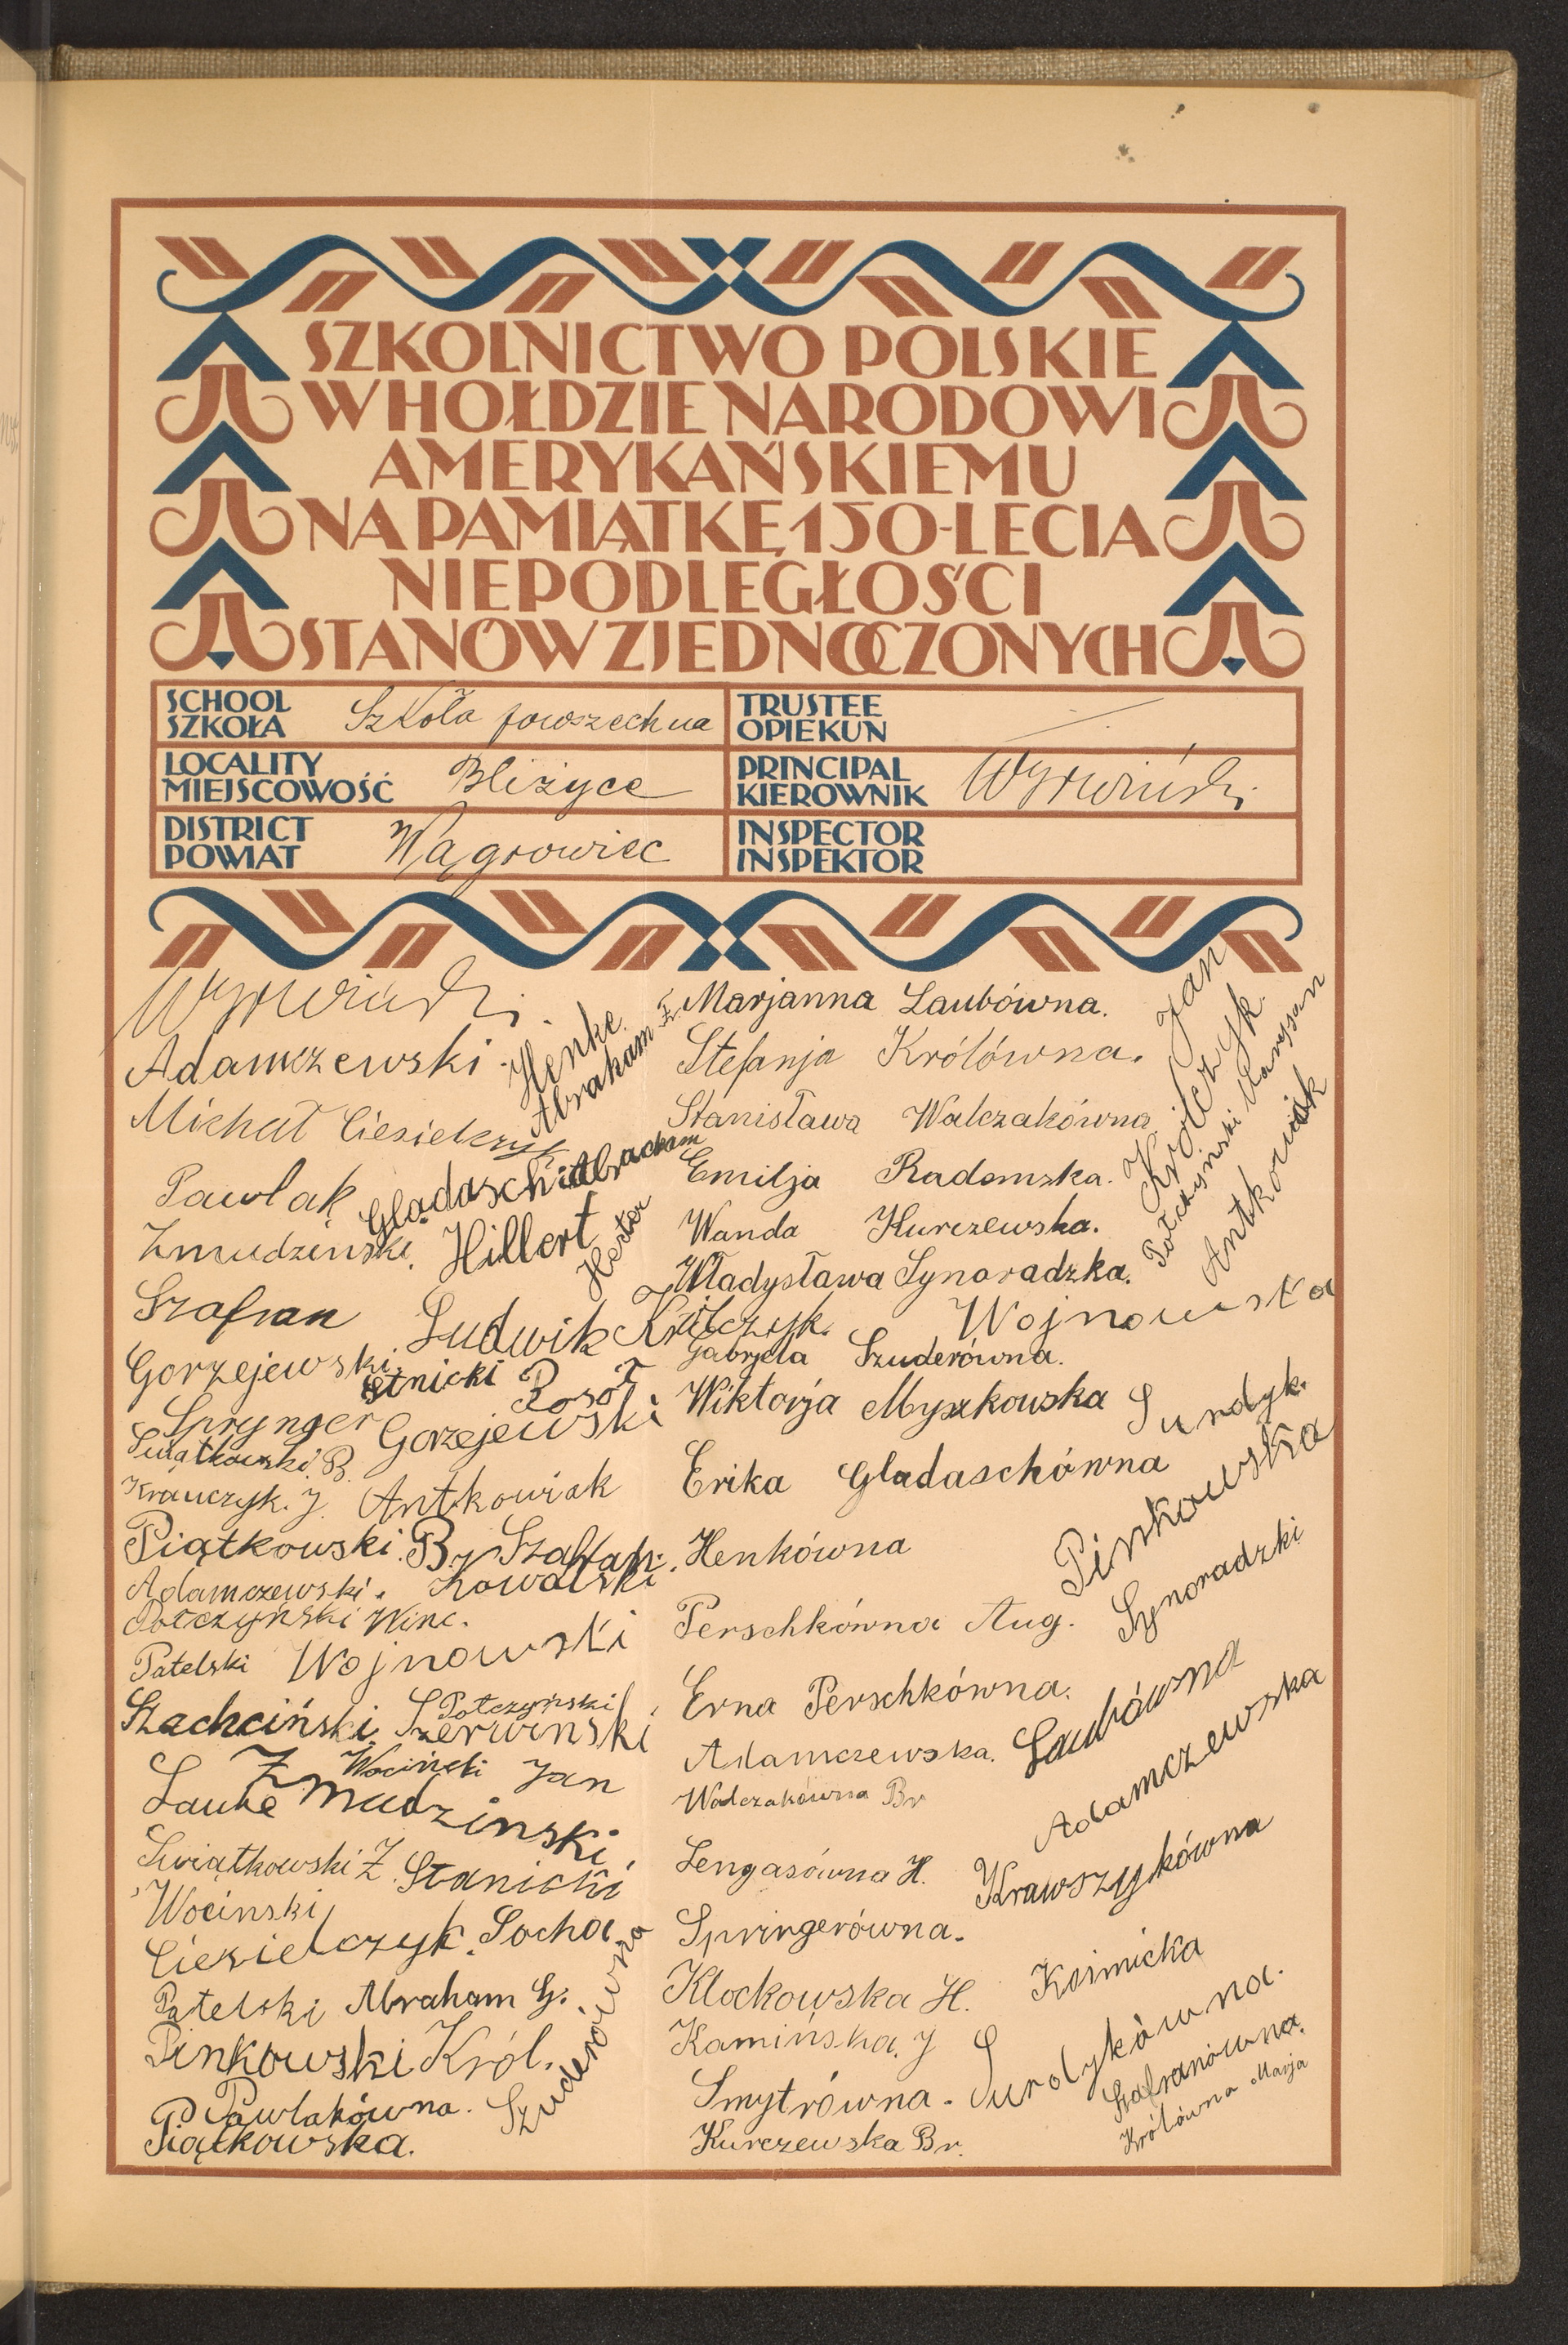 SZKOLNICTWO POLSKIE
W HOŁDZIE NARODOWI
AMERYKAŃSKIEMU
NA PAMIĄTKĘ 150-LECIA
NIEPODLEGŁOŚCI
STANÓW ZJEDNOCZONYCH
SCHOOL
SZKOŁA
Szkoła powszechna
TRUSTEE
OPIEKUN
LOCALITY
MIEJSCOWOŚĆ
Bliżyce
PRINCIPAL
KIEROWNIK
Wyrwiński
DISTRICT
POWIAT
Wągrowiec
INSPECTOR
INSPEKTOR
Wyrwiński.
Adamczewski.
Henke.
Abraham Fr.
Michał Ciesielczyk
Pawlak
Gladasch
Abracham
Zmudzinski.
Hillert
Herter
Szafran
Ludwik Królczyk.
Gorzejewski.
Etnicki
Rosół
Sprynger
Gorzejewski
Swiątkowski. B.
Krawczyk. J.
Antkowiak
Piątkowski. B.
Szafran.
Adamczewski.
Kowalski
Potczyński Winc.
Patelski
Wojnowski
Szachciński.
Potczyński
Szerwinski
Wociński Jan
Laube
Zmudzinski
Swiątkowski Z.
Stanicki
Wocinski
Ciesielczyk.
Socha
Patelski
Abraham G.
Pinkowski
Król.
Pawlakówna.
Szuderówna
Piątkowska.
Marjanna Laubówna.
Stefanja Królówna.
Stanisława Walczakówna
Emilja Radomska.
Wanda Kurczewska.
Władysława Synoradzka.
Gabryela Szuderówna.
Wiktorja Myszkowska
Erika Gladaschówna
Henkówna
Perschkówna Aug.
Erna Perschkówna.
Adamczewska.
Walczakówna Br
Lengasówna H.
Springerówna.
Klockowska H.
Kamińska. J
Smytrówna.
Kurczewska Br.
Jan
Królczyk.
Potczyński Marjan
Antkowiak
Wojnowska
Surdyk.
Pinkowska
Synoradzki
Laubówna
Adamczewska
Krawszykówna
Kosmicka
Surdykówna.
Szafranówna.
Królówna Marja